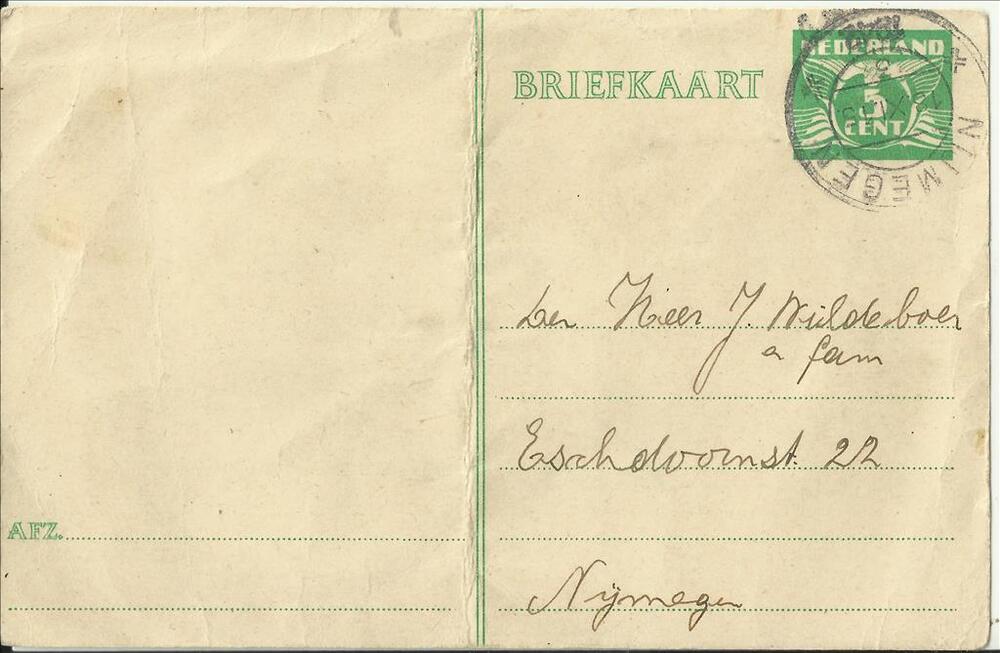 BRIEFKAART
NEDERLAND
5
CENT
NIJMEGEN
den Heer J. Wildeboer
en fam
Eschdoornst. 22
Nijmegen
AFZ.